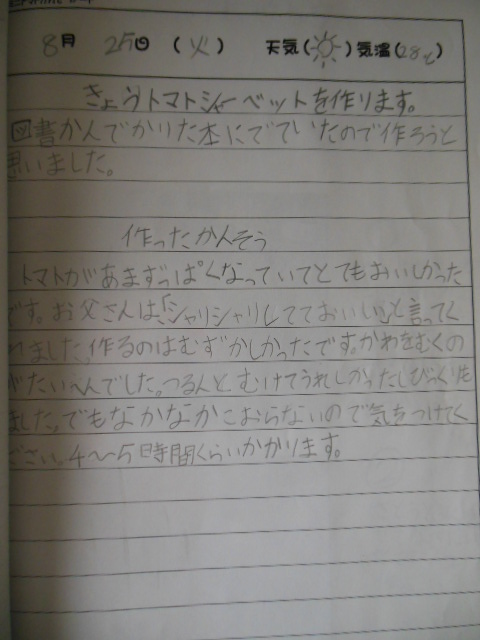 8月 25日 (火) 天気( )気温(28℃)
きょうトマトシャーベットを作ります。
図書かんでかりた本にでていたので作ろうと
思いました。
作ったかんそう
トマトがあまずっぱくなっていてとてもおいしかった
です。お父さんは、「シャリシャリしてておいしい。」と言ってく
れました。作るのはむずかしかったです。かわをむくの
がたいへんでした。つるんと、むけてうれしかったしびっくりし
ました。でもなかなかこおらないので気をつけてく
ださい。4〜5時間くらいかかります。